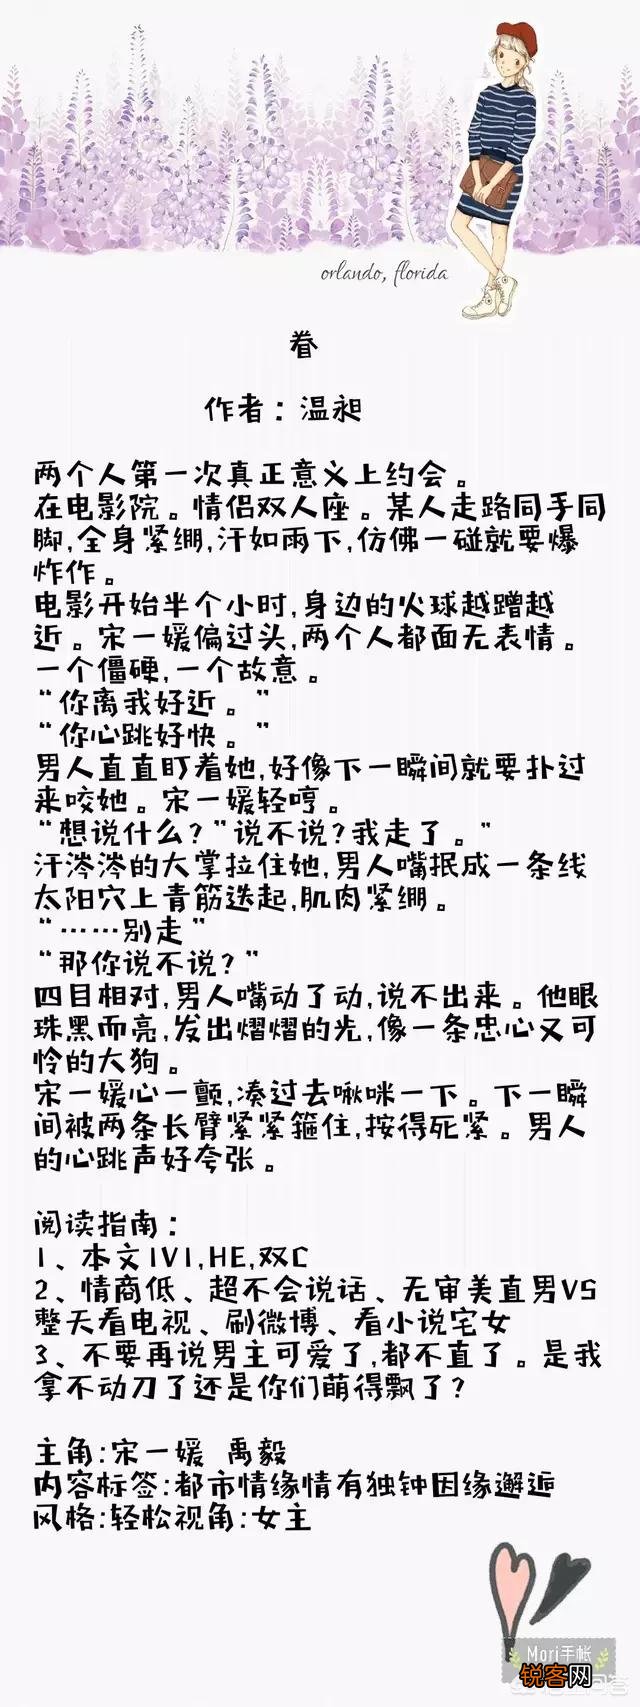 orlando, florida
眷
作者：温昶
两个人第一次真正意义上约会。
在电影院。情侣双人座。某人走路同手同
脚，全身紧绷，汗如雨下，仿佛一碰就要爆
炸作。
电影开始半个小时，身边的火球越蹭越
近。宋一媛偏过头，两个人都面无表情。
一个僵硬，一个故意。
“你离我好近。”
“你心跳好快。”
男人直直盯着她，好像下一瞬间就要扑过
来咬她。宋一媛轻哼。
“想说什么？”说不说？我走了。"
汗涔涔的大掌拉住她，男人嘴抿成一条线
太阳穴上青筋迭起，肌肉紧绷。
“……别走”
“那你说不说？”
四目相对，男人嘴动了动，说不出来。他眼
珠黑而亮，发出熠熠的光，像一条忠心又可
怜的大狗。
宋一媛心一颤，凑过去啾咪一下。下一瞬
间被两条长臂紧紧箍住，按得死紧。男人
的心跳声好夸张。
阅读指南：
1、本文1V1,HE,双C
2、情商低、超不会说话、无审美直男VS
整天看电视、刷微博、看小说宅女
3、不要再说男主可爱了，都不直了。是我
拿不动刀了还是你们萌得飘了？
主角：宋一媛 禹毅
内容标签：都市情缘情有独钟因缘邂逅
风格：轻松视角：女主
Mori手帐
锐客网